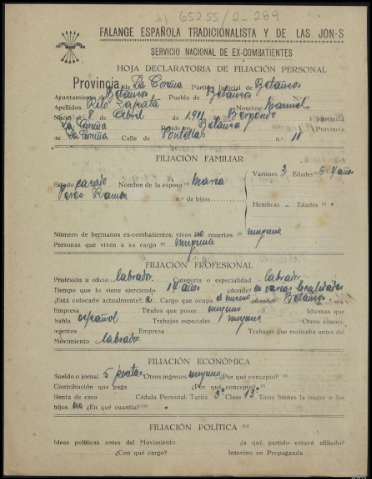 65255/2-289
FALANGE ESPAÑOLA TRADICIONALISTA Y DE LAS JON-S
SERVICIO NACIONAL DE EX-COMBATIENTES
HOJA DECLARATORIA DE FILIACIÓN PERSONAL
Provincia de La Coruña Partido Judicial de Betanzos
Ayuntamiento de Betanzos Pueblo de Betanzos
Apellidos Zapata Nombre Manuel
Nació el 8 de Abril de 1911 en Bergondo
La Coruña Betanzos Provincia
La Coruña Calle de n.º 11
FILIACIÓN FAMILIAR
Estado casado Nombre de la esposa María
Varones 3 Edades años
n.º de hijos
Hembras Edades
Número de hermanos ex-combatientes, vivos no muertos ninguno
Personas que viven a su cargo ninguna
FILIACIÓN PROFESIONAL
Profesión u oficio labrador Categoría o especialidad labrador
Tiempo que lo viene ejerciendo 18 años en varias localidades
¿Está colocado actualmente? Cargo que ocupa el mismo Betanzos
Empresa Títulos que posee ninguno Idiomas que
habla español Trabajos especiales ninguno Otros
Empresa Trabajos que realizaba antes del
Movimiento labrador
FILIACIÓN ECONÓMICA
Sueldo o jornal 5 pesetas Otros ingresos ninguno ¿Por qué concepto?
Contribución que paga ¿Por qué concepto?
Renta de casa Cédula Personal. Tarifa 3ª Clase 13ª Tiene bienes la mujer o los
hijos no ¿En qué cuantía?
FILIACIÓN POLÍTICA
Ideas políticas antes del Movimiento ¿a qué partido estuvo afiliado?
¿Con qué cargo? Intervino en Propaganda